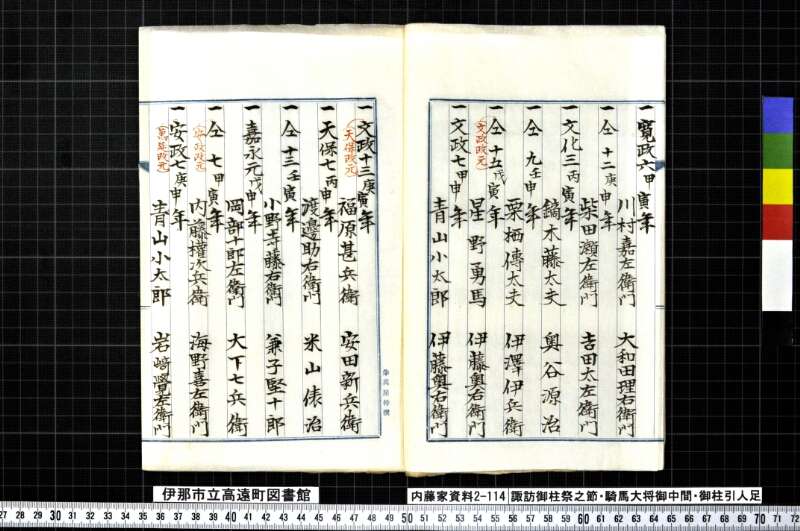 一寛政六甲寅年
川村嘉左衛門 大和田理右衛門
一仝十二庚申年
柴田瀬左衛門 吉田太左衛門
一文化三丙寅年
鏑木藤太夫 奥谷源治
一仝九壬申年
栗栖傳太夫 伊澤伊兵衛
一仝十五戊寅年
(文政改元)
星野勇馬 伊藤奥右衛門
一文政七甲申年
青山小太郎 伊藤奥右衛門
一文政十三庚寅年
(天保改元)
福原甚兵衛 安田新兵衛
一天保七丙申年
渡邊助右衛門 米山俵治
一仝十三壬寅年
小野寺藤右衛門 兼子堅十郎
一嘉永元戊申年
岡部十郎左衛門 大下七兵衛
一仝七甲寅年
(安政改元)
内藤権次兵衛 海野喜左衛門
一安政七庚申年
(萬延改元)
青山小太郎 岩﨑聲左衛門
伊那市立高遠町図書館
内藤家資料2-114 諏訪御柱祭之節・騎馬大将御中間・御柱引人足